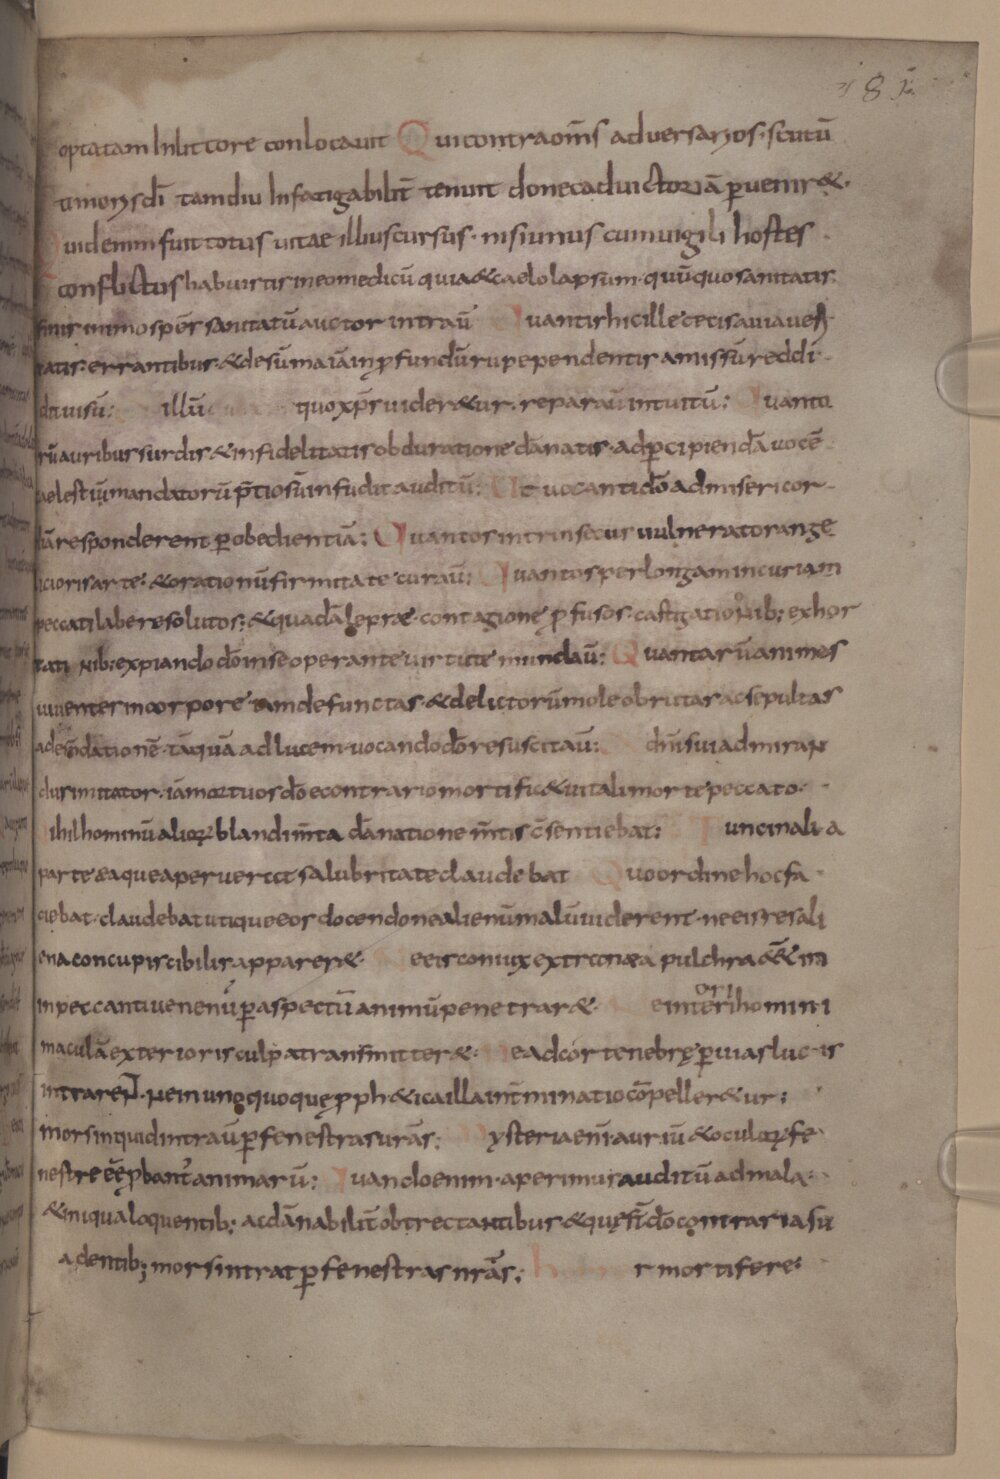 181
optatam In littore conlocauit Qui contra om̄s aduersarios · scutū
timoris dī tamdiu Infatigabilit̄ tenuit donec ad uictoriā ꝑuenir& ·
Quid enim fuit totus uitae illius cursus · nisi unus cum uigili hostes
conflictus habuistis in eo medicū quia & caelo lapsum · quū quo sanitatis
finis inimo spēs sanitatū auctor intrau̅ Quantis hic ille cecis a uia ueri
tatis · errantibus · & de sūma iā in ꝓfundū rupe pendentis amissū reddi
dit uisū : illū quo xp̄s uider&ur · reparau̅ intuitū : Quanto
rū auribus surdis & infidelitatis obduratione dānatis · ad ꝑcipiendā uocē
caelestiū mandatorū p̄tiosū infudit auditū : Ut uocanti dō ad misericor
diā responderent ꝑ obedientiā : Quantos intrinsecus uulneratos ange
licioris arte : & orationū firmitate curau̅ : Quantos per longam incuriam
peccati labe resolutos ; & quadā leprae contagione ꝓfusos · castigationib; exhor
tationib; expiando dō in se operante uirtute mundau̅ : Quantarū animas
uiuentes in corpore iam defunctas · & delictorū mole obrutas ac sepultas
ad em̄dationē · tāquā ad lucem · uocando dō resuscitau̅ : dn̄i sui admiran
dus imitator · iā mortuos dō e contrario mortific& uitali morte peccato ·
Nihil hominū aliorꝝ blandim̄ta dānatione m̄tis c̄sentiebat : Tunc in alia
parte ea que aperuer& salubritate claudebat Quo ordine hoc fa
ciebat · claudebat utique eos docendo ne alienū malū uiderent · ne eis res ali
ena concupiscibilis apparer& Ne eis coniux extranea pulchra
in peccanti uenenū ꝑ aspectū animū penetrar& · Ne interiori homini
maculā exterioris culpa transmitter& · Ne ad cor tenebrę ꝑ uias lucis
intrarent · Ne in unoquoque ꝓph&ica illa int̄minatio cōpeller&ur :
mors inquid intrau̅ ꝑ fenestras urās : Mysteria enī auriū & oculorꝝ fe
nestre eē ꝓbant᷑ animarū : Quando enim · aperimus auditū ad mala ·
& iniqua loquentib; ac dānabilit̄ obtrectantibus & quę st̄ dō contraria su
adentib; mors intrat ꝑ fenestras nrās : r mortifere :